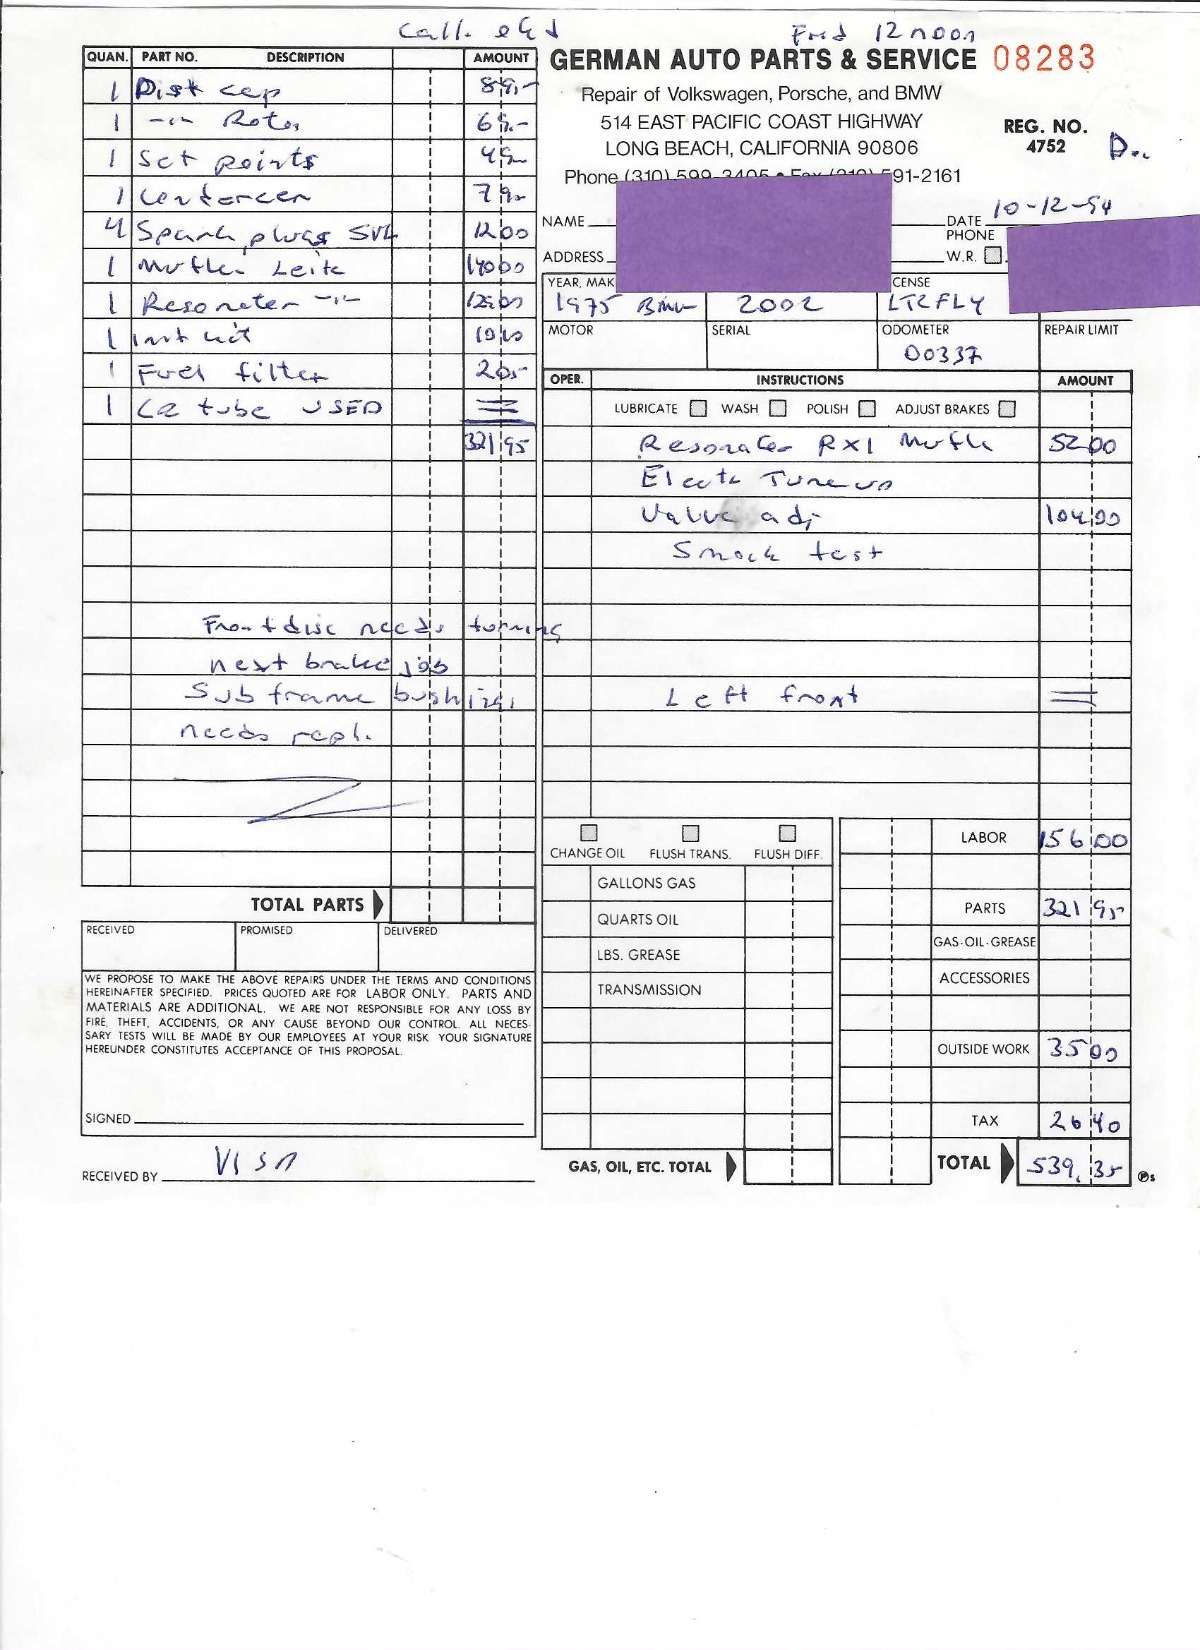 Call.
Fred 12 noon
QUAN. PART NO. DESCRIPTION AMOUNT
1 Dist cap
1 -"- Rotor
1 Set points
1 Condencer
4 Spark plugs SVL 12 00
1 Mufler Leitz 140 00
1 Resonater -"-
1 kit
1 Fuel filter
1 tube USED
321 95
Front disc needs turning
next brake job
Sub frame bushings
needs repl.
TOTAL PARTS
RECEIVED PROMISED DELIVERED
WE PROPOSE TO MAKE THE ABOVE REPAIRS UNDER THE TERMS AND CONDITIONS
HEREINAFTER SPECIFIED. PRICES QUOTED ARE FOR LABOR ONLY. PARTS AND
MATERIALS ARE ADDITIONAL. WE ARE NOT RESPONSIBLE FOR ANY LOSS BY
FIRE, THEFT, ACCIDENTS, OR ANY CAUSE BEYOND OUR CONTROL. ALL NECES-
SARY TESTS WILL BE MADE BY OUR EMPLOYEES AT YOUR RISK. YOUR SIGNATURE
HEREUNDER CONSTITUTES ACCEPTANCE OF THIS PROPOSAL.
SIGNED
VISA
RECEIVED BY
GERMAN AUTO PARTS & SERVICE 08283
Repair of Volkswagen, Porsche, and BMW
514 EAST PACIFIC COAST HIGHWAY
LONG BEACH, CALIFORNIA 90806
REG. NO.
4752
Phone (310) 599-3405 • Fax (310) 591-2161
NAME DATE 10-12-94
PHONE
ADDRESS W.R.
YEAR, MAK CENSE
1975 BMW 2002 LTRFLY
MOTOR SERIAL ODOMETER REPAIR LIMIT
00337
OPER. INSTRUCTIONS AMOUNT
LUBRICATE WASH POLISH ADJUST BRAKES
Resonater RX1 Mufle 52 00
Elects Tune up
Valve adj 104 00
Smock test
Left front
CHANGE OIL FLUSH TRANS. FLUSH DIFF.
GALLONS GAS
QUARTS OIL
LBS. GREASE
TRANSMISSION
GAS, OIL, ETC. TOTAL
LABOR 156 00
PARTS 321 95
GAS-OIL-GREASE
ACCESSORIES
OUTSIDE WORK 35 00
TAX 26 40
TOTAL 539.35